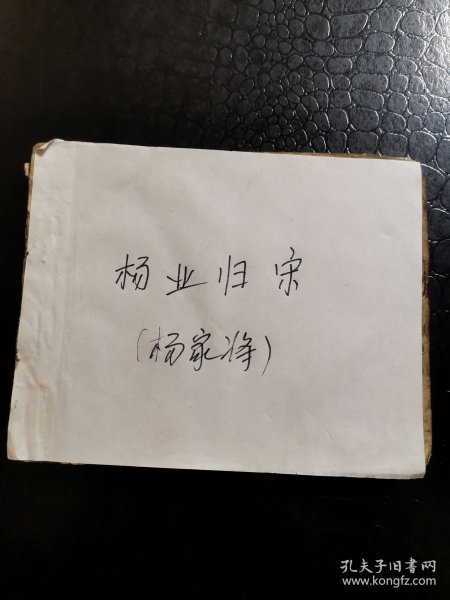 杨业归宋
(杨家将)
孔夫子旧书网
www.kongfz.com